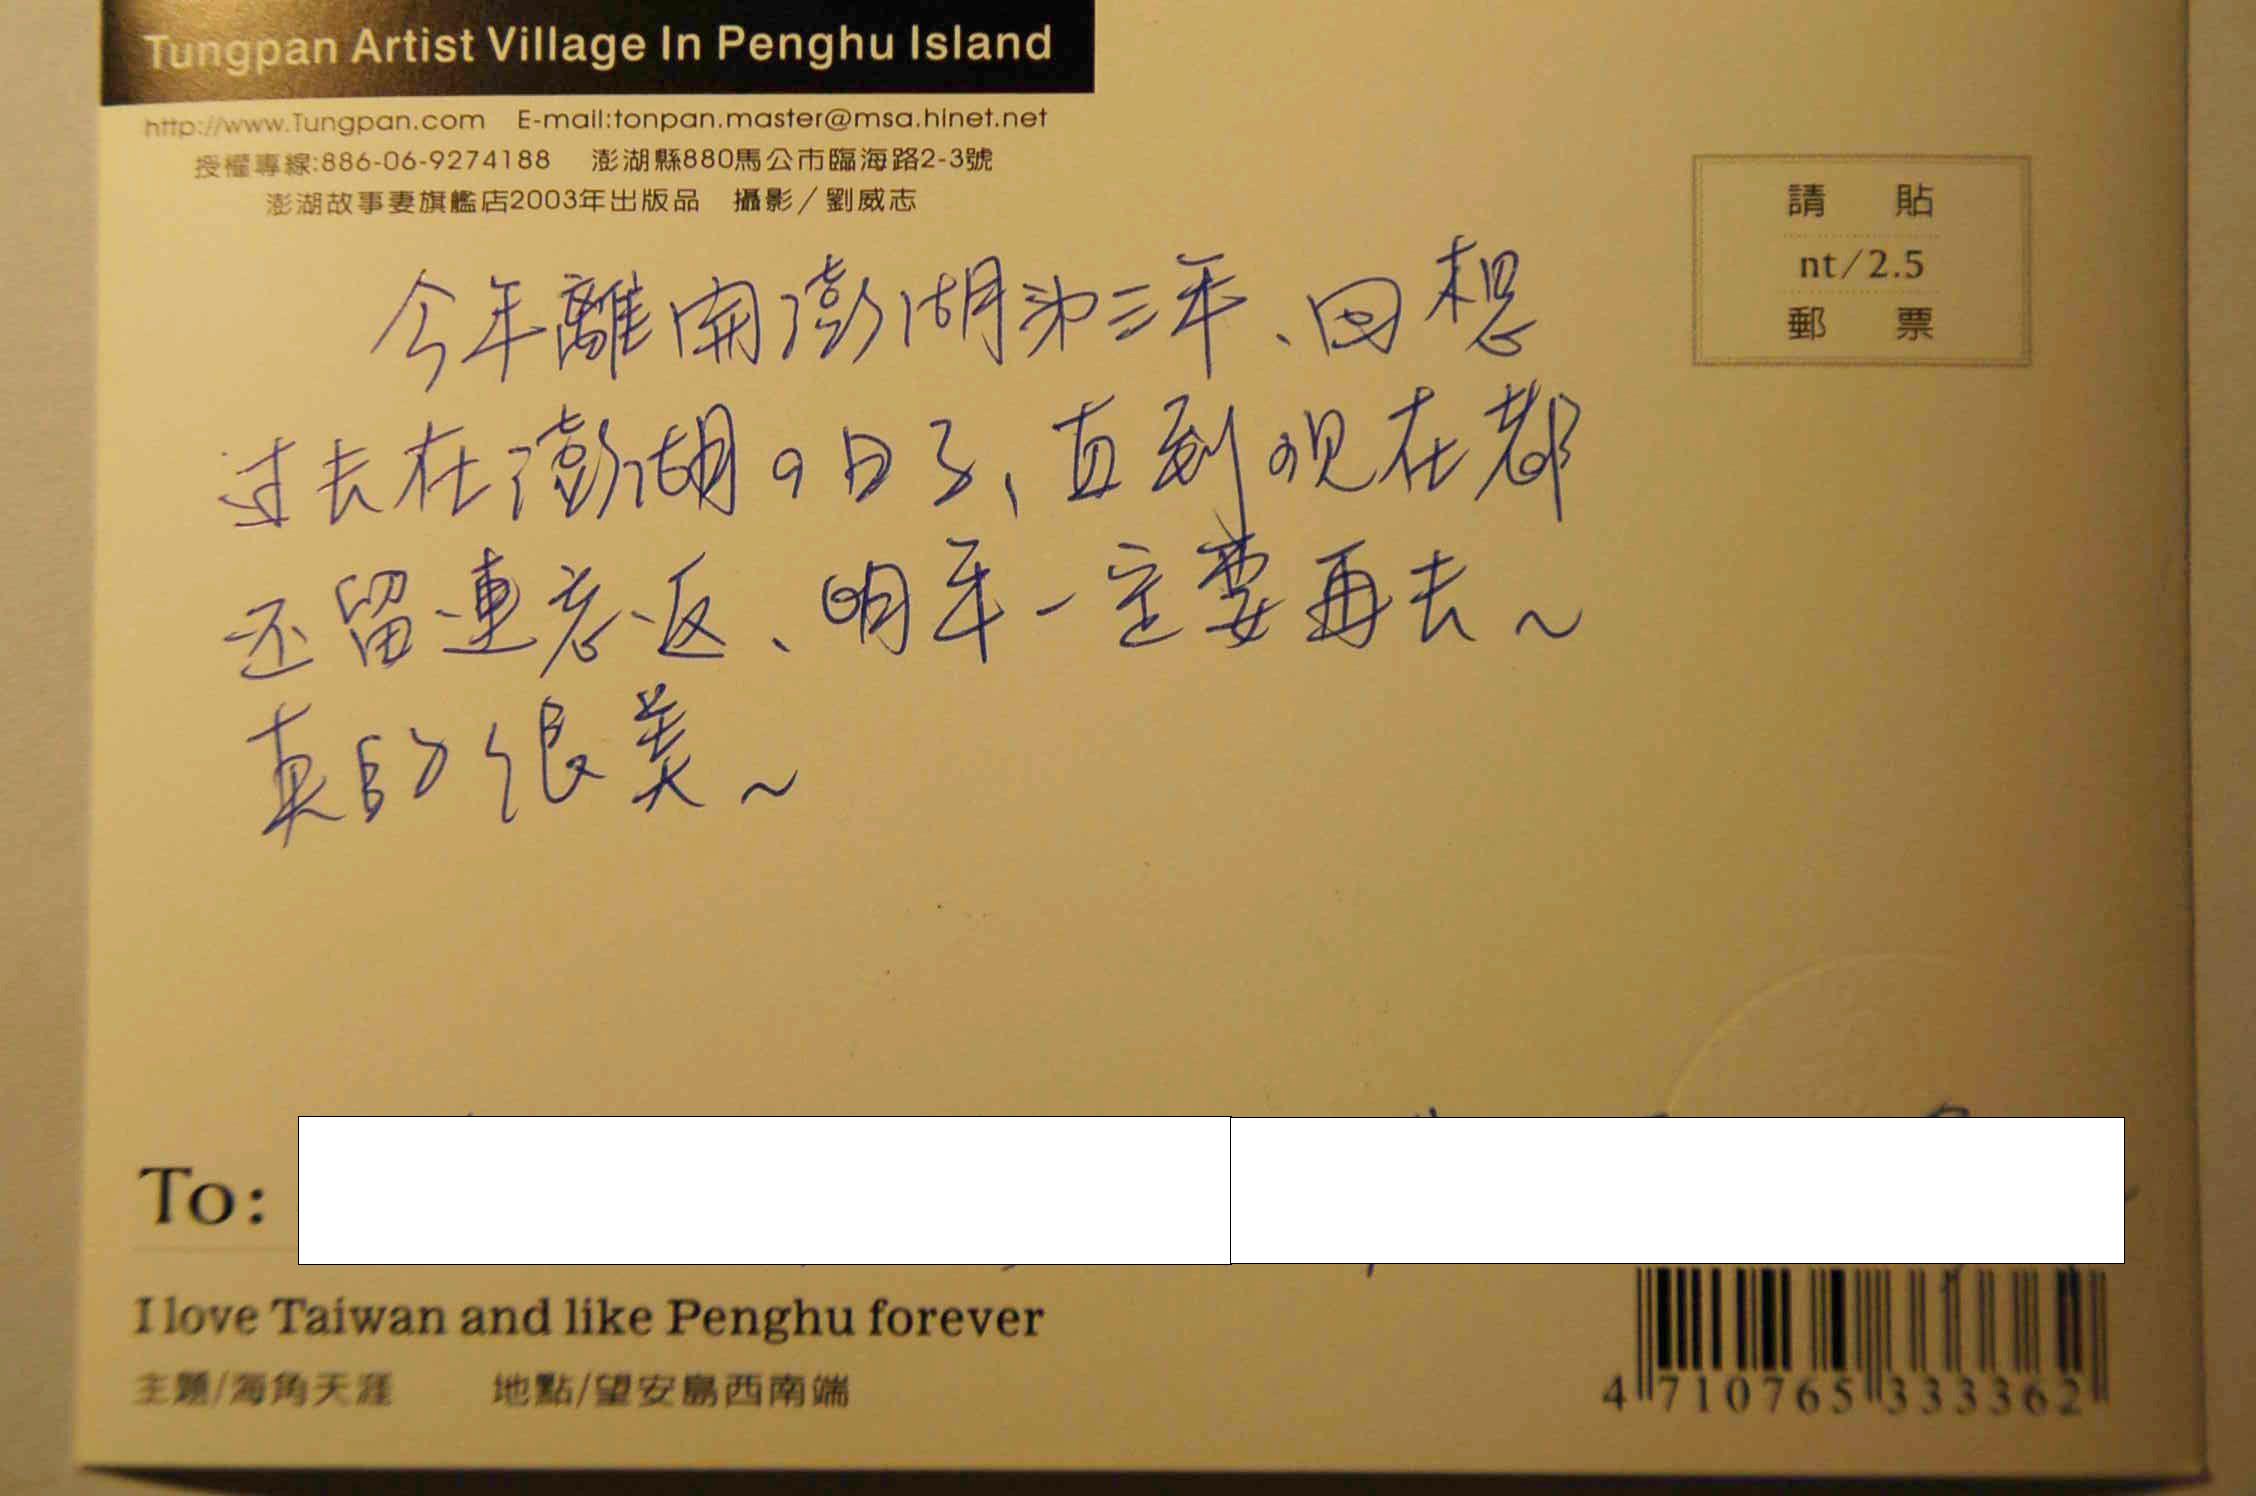 Tungpan Artist Village In Penghu Island
http://www.Tungpan.com E-mail:tonpan.master@msa.hinet.net
授權專線:886-06-9274188 澎湖縣880馬公市臨海路2-3號
澎湖故事妻旗艦店2003年出版品 攝影／劉威志
請 貼
nt/2.5
郵 票
今年離開澎湖第三年、回想
过去在澎湖的日子、直到現在都
还留連忘返、明年一定要再去~
真的很美~
To:
I love Taiwan and like Penghu forever
主題/海角天涯 地點/望安島西南端
4 710765 333362